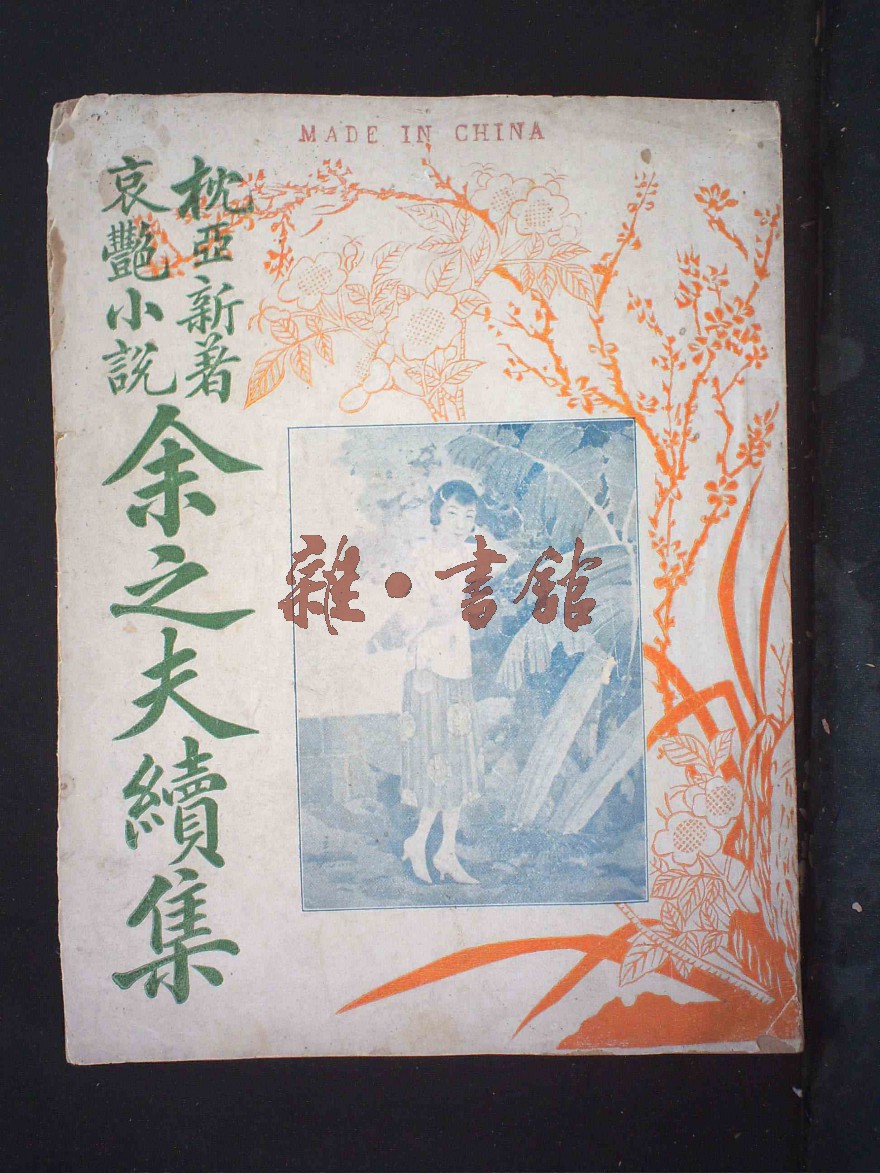 MADE IN CHINA
枕亞新著
哀艷小說
余之夫續集
雜·書館